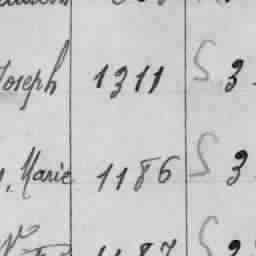 Joseph 1311 S 3
, Marie 1186 S 3
1187 S